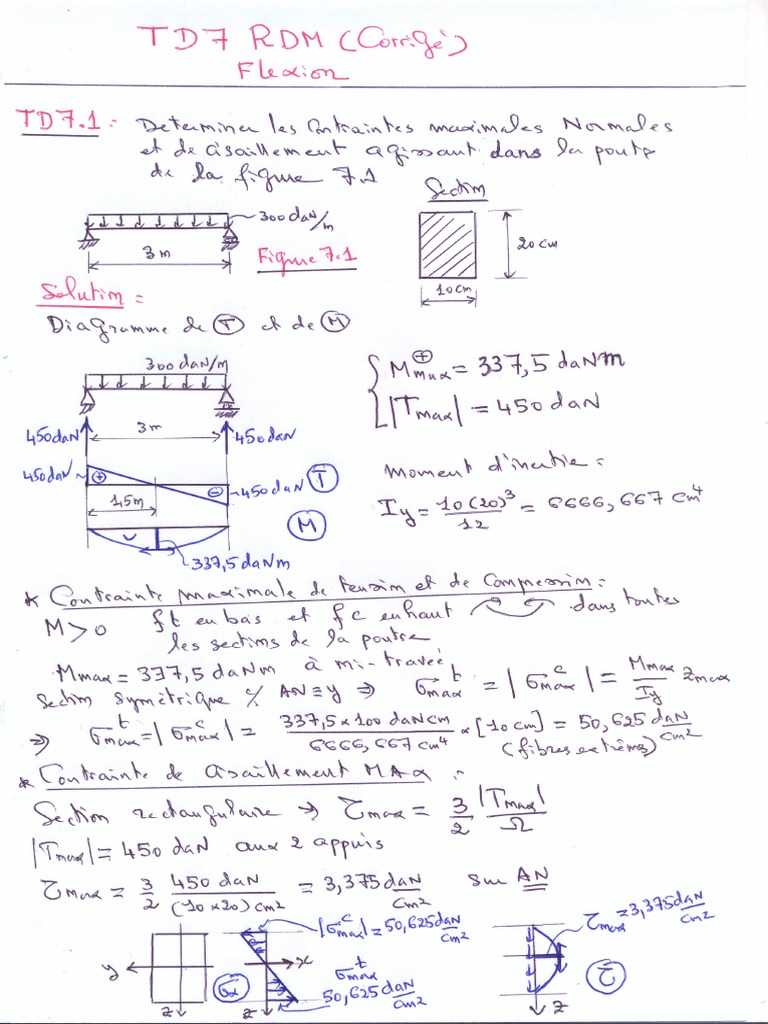 TD7 RDM (Corrigé)
Flexion
TD7.1 : Determiner les Contraintes maximales Normales
et de cisaillement agissant dans la poutre
de la figure 7.1
Section
300 daN/m
3 m
Figure 7.1
20 cm
10 cm
Solution =
Diagramme de (T) et de (M)
300 daN/m
M⊕max = 337,5 daNm
|Tmax| = 450 daN
450 daN
3m
450 daN
450 daN
+
-
450 daN
T
1,5m
M
337,5 daNm
moment d'inertie =
Iy = 10(20)³/12 = 6666,667 cm⁴
* Contrainte maximale de tension et de Compression =
M > 0 ft en bas et fc en haut dans toutes
les sections de la poutre
Mmax = 337,5 daNm à mi-travée
Section symétrique % AN ≡ y ⇒ σᵗmax = |σᶜmax| = Mmax/Iy zmax
⇒ σᵗmax = |σᶜmax| = 337,5 x 100 daNcm / 6666,667 cm⁴ x [10 cm] = 50,625 daN/cm²
(fibres extrêmes)
* Contrainte de cisaillement MAx :
Section rectangulaire ⇒ τmax = 3/2 |Tmax|/Ω
|Tmax| = 450 daN aux 2 appuis
τmax = 3/2 450 daN/(10 x 20) cm² = 3,375 daN/cm² sur AN
|σᶜmax| = 50,625 daN/cm²
y
z
σx
x
z
σᵗmax
50,625 daN/cm²
τmax = 3,375 daN/cm²
τ
z